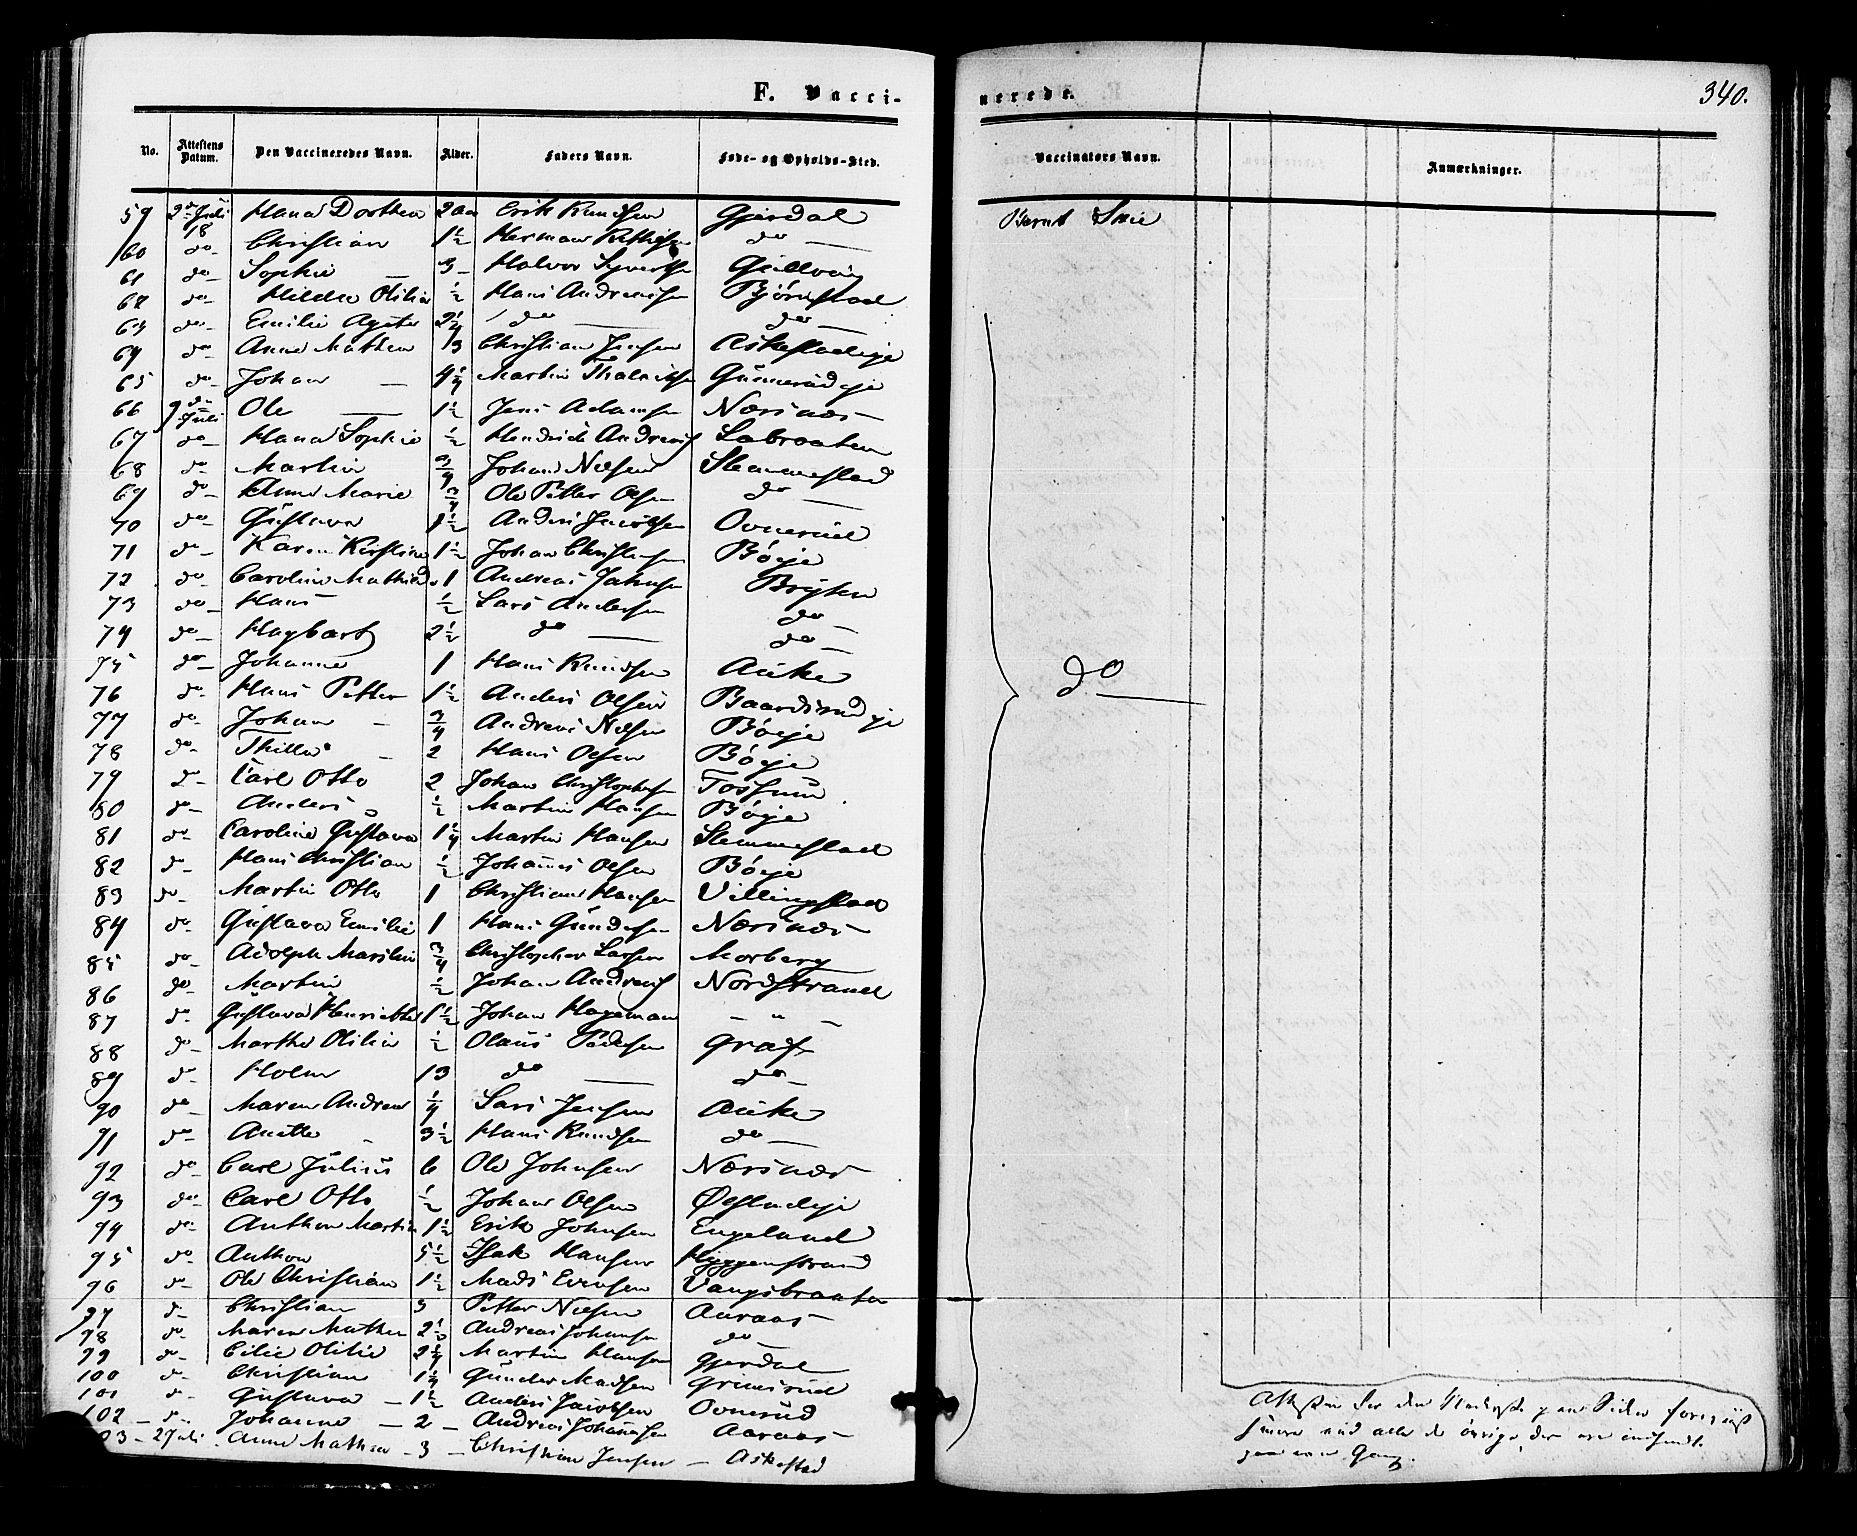 F. Vacci-
No. Attestens Datum. Den Vaccineredes Navn. Alder. Faders Navn. Føde- og Opholds-Sted.
59 2 Juli Hana Dorthea 2 Aar Erik Knudsen Gjerdal
60 do Christian 1½ Herman do
61 do Sophie 3 Halvor Syvertsen
62 do Hilda Otilia ½ Hans Andreasen Bjørnstad
63 do Emilie Agate 2¼ do do
64 do Anne Mathea 13 Christian Jensen Askestadeje
65 do Johan 4¼ Martin Gunnerudeje
66 9 Juli Ole 1½ Jens Adamsen Næsnæs
67 do Hana Sophie ½ Hendrick Andreas Labraaten
68 do Martin ¾ Johan Nilsen Slemmestad
69 do Anne Marie ¾ Ole Petter Olsen do
70 do Gustava 1½ Anders Jacobsen Ovnerud
71 do Karen Kirstine 1½ Johan Christensen Bøeje
72 do Caroline Mathild 1 Andreas Johnsen Brøten
73 do Hans ½ Lars Andersen do
74 do Hagbart 2½ do do
75 do Johanne 1 Hans Knudsen Auke
76 do Hans Petter 1½ Anders Olsen Baardsrudeje
77 do Johan ¾ Andreas Nilsen Bøeje
78 do Thilla 2 Hans Olsen Bøeje
79 do Carl Otto 2 Johan Christophersen Tossum
80 do Anders ½ Martin Hansen Bøeje
81 do Caroline Gustava 1¼ Martin Hansen Slemmestad
82 do Hans Christian ½ Johannes Olsen Bøeje
83 do Martin Otto 1 Christian Hansen Villingstad
84 do Gustava Emilie 1 Hans Gundersen Næsnæs
85 do Adolph Marthin ¾ Christopher Larsen Morberg
86 do Martin ½ Johan Andreas Nordstrand
87 do Gustava Henriette 1½ Johan Hageman — " —
88 do Marthe Otilie ½ Olaus Pedersen Graf
89 do Holm 13 do do
90 do Maren Andrea ¼ Lars Jensen Auke
91 do Anette 3½ Hans Knudsen do
92 do Carl Julius 6 Ole Johnsen Næsnæs
93 do Carl Otto ½ Johan Olsen Østladeje
94 do Anthon Martin 1½ Erik Johnsen Engeland
95 do Anthon 5½ Isak Hansen Hyggenstrand
96 do Ole Christian 1½ Mads Evensen Vangsbraaten
97 do Christian 3 Petter Nilsen Aaraas
98 do Maren Mathea 2½ Andreas Johansen do
99 do Cilie Otilie 2¼ Martin Hansen Gjerdal
100 do Christian 1¼ Gunder Madsen Grimsrud
101 do Gustava 1½ Anders Jacobsen Ovnerud
102 do Johanne 2 Andreas Johannsen Aaraas
103 27 Juli Anne Mathea 3 Christian Jensen Askestad
nerede.
340.
Vaccinators Navn. Anmærkninger.
Bernt Skie
do